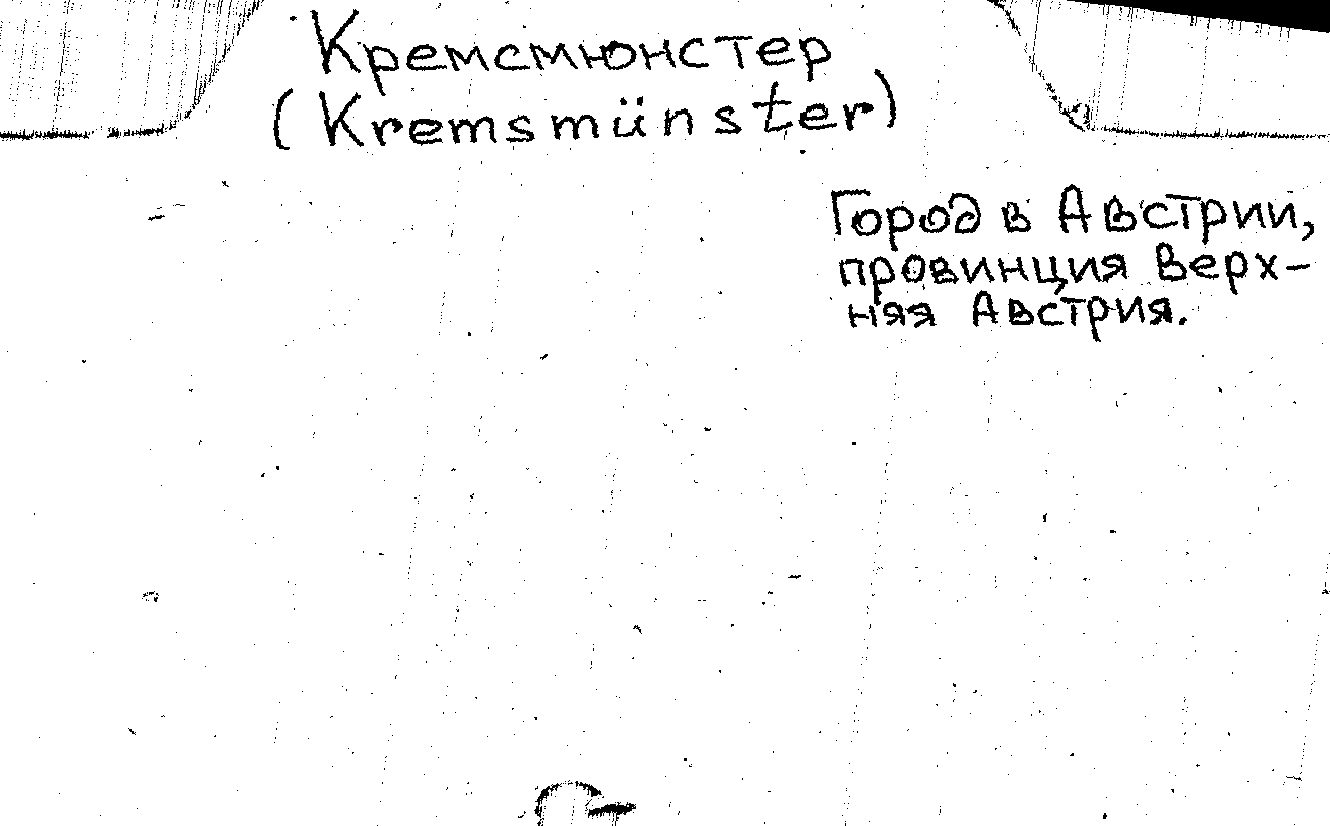 Кремсмюнстер
(Kremsmünster)
Город в Австрии,
провинция Верх-
няя Австрия.